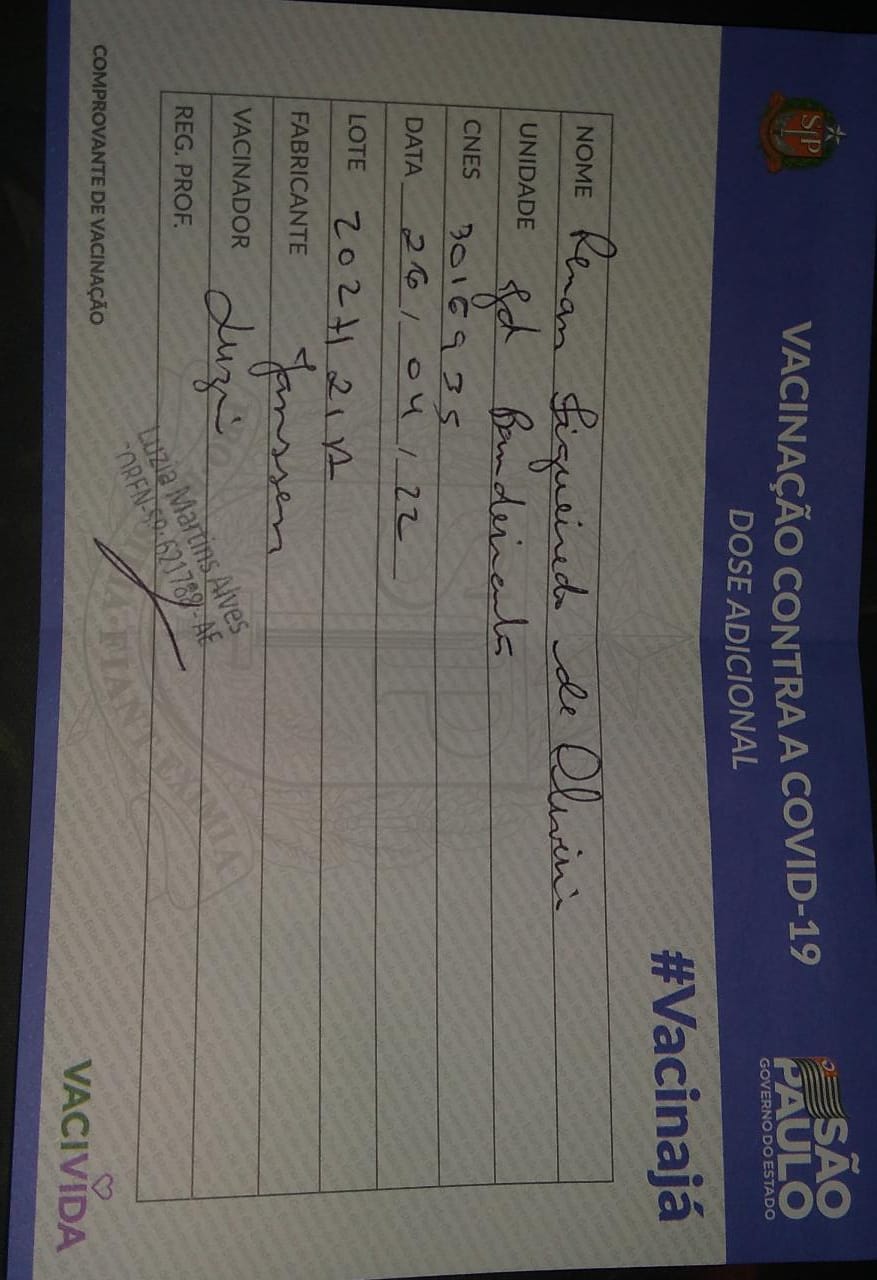 VACINAÇÃO CONTRA A COVID-19
DOSE ADICIONAL
SÃO
PAULO
GOVERNO DO ESTADO
SP
#Vacinajá
NOME Renan Siqueira de Oliveira
UNIDADE Jd Bandeirantes
CNES 3016935
DATA 26/04/22
LOTE 202H21A
FABRICANTE Janssen
VACINADOR Luzia
REG. PROF.
Luzia Martins Alves
COREN-SP-621789-AE
COMPROVANTE DE VACINAÇÃO
VACIVIDA